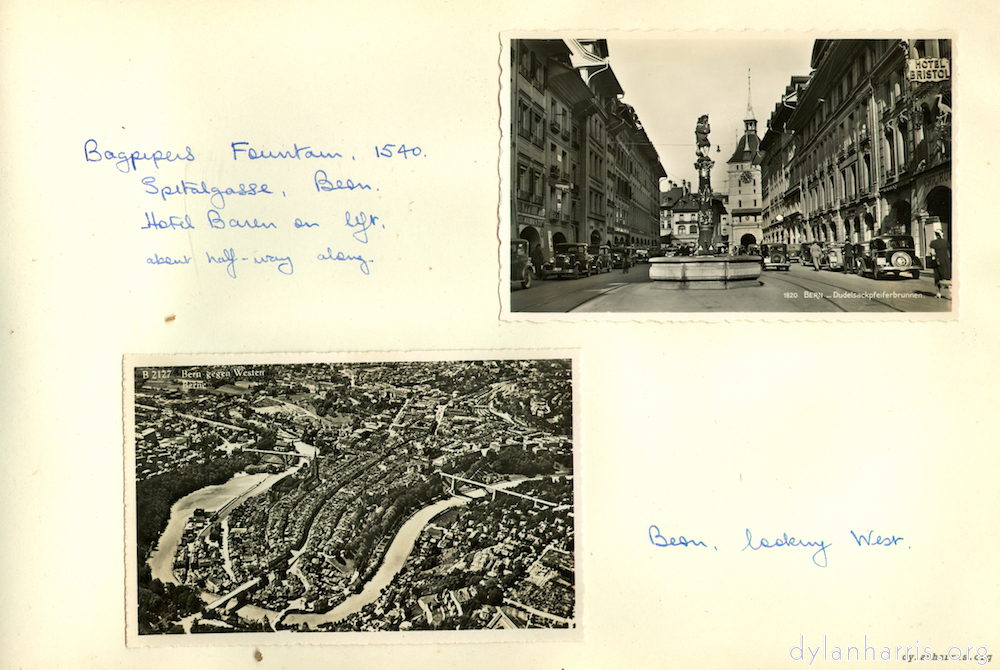 Bagpipers Fountain, 1540.
Spitalgasse, Bern.
Hotel Baren on left,
about half-way along.
HOTEL
BRISTOL
1820 BERN – Dudelsackpfeiferbrunnen.
B 2127 Bern gegen Westen
Berne
Bern, looking West.
dylanharris.org
dylanharris.org